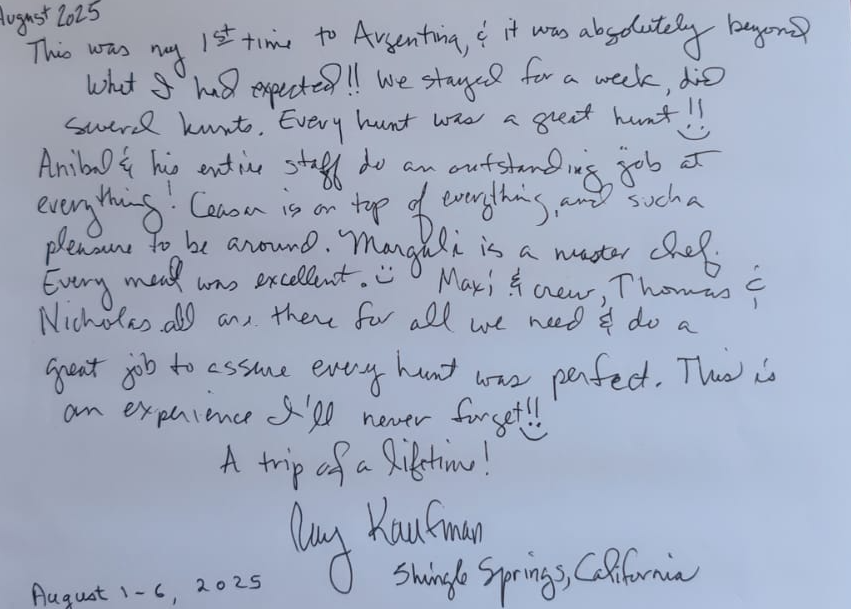 August 2025
This was my 1st time to Argentina, & it was absolutely beyond
what I had expected!! We stayed for a week, did
several hunts. Every hunt was a great hunt!!
Anibal & his entire staff do an outstanding job at
everything! Ceasar is on top of everything, and such a
pleasure to be around. Marguli is a master chef.
Every meal was excellent. Maxi & crew, Thomas &
Nicholas all are there for all we need & do a
great job to assure every hunt was perfect. This is
an experience I'll never forget!!
A trip of a lifetime!
Ray Kaufman
Shingle Springs, California
August 1-6, 2025